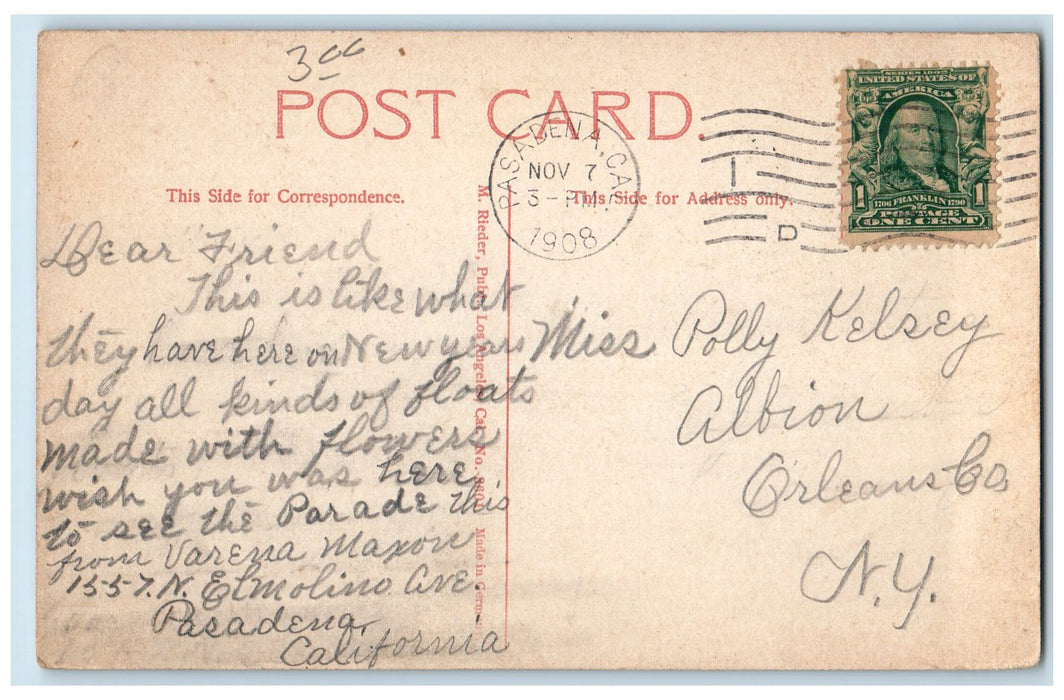 3 00
POST CARD.
PASADENA, CA.
NOV 7
3-PM
1908
D
SERIES 1902
UNITED STATES OF
AMERICA
1 1
1706 FRANKLIN 1790
POSTAGE
ONE CENT
This Side for Correspondence.
This Side for Address only.
M. Rieder, Publ. Los Angeles, Cal. No. Made in Germany
Dear Friend
This is like what
they have here on New years
day all kinds of floats
made with flowers
wish you was here
to see the Parade this
from Varena Maxon
1557. N. El Molino Ave.
Pasadena,
California
Miss Polly Kelsey
Albion
Orleans Co,
N.Y.